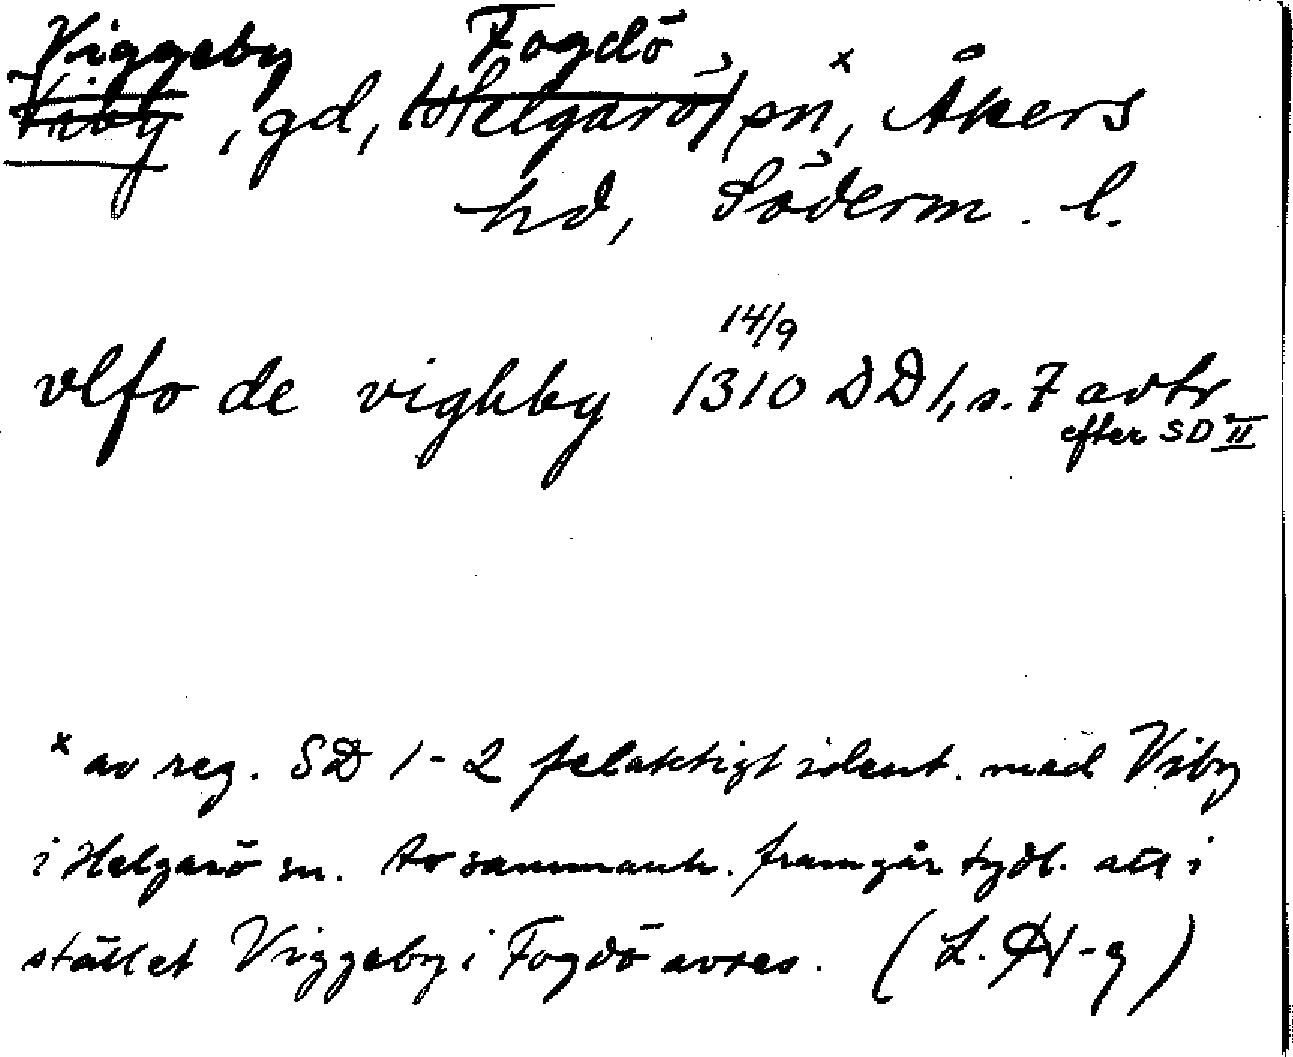 Viggeby Fogdö
Viby, gd, (Helgarö) sn x, Åkers
hd, Söderm. l.
14/9
vlfo de vighby 1310 DD 1, s. 7 avtr
efter SD II
x av reg. SD 1-2 felaktigt ident. med Viby
i Helgarö sn. Av sammanh. framgår tydl. att i
stället Viggeby i Fogdö avses. (L.